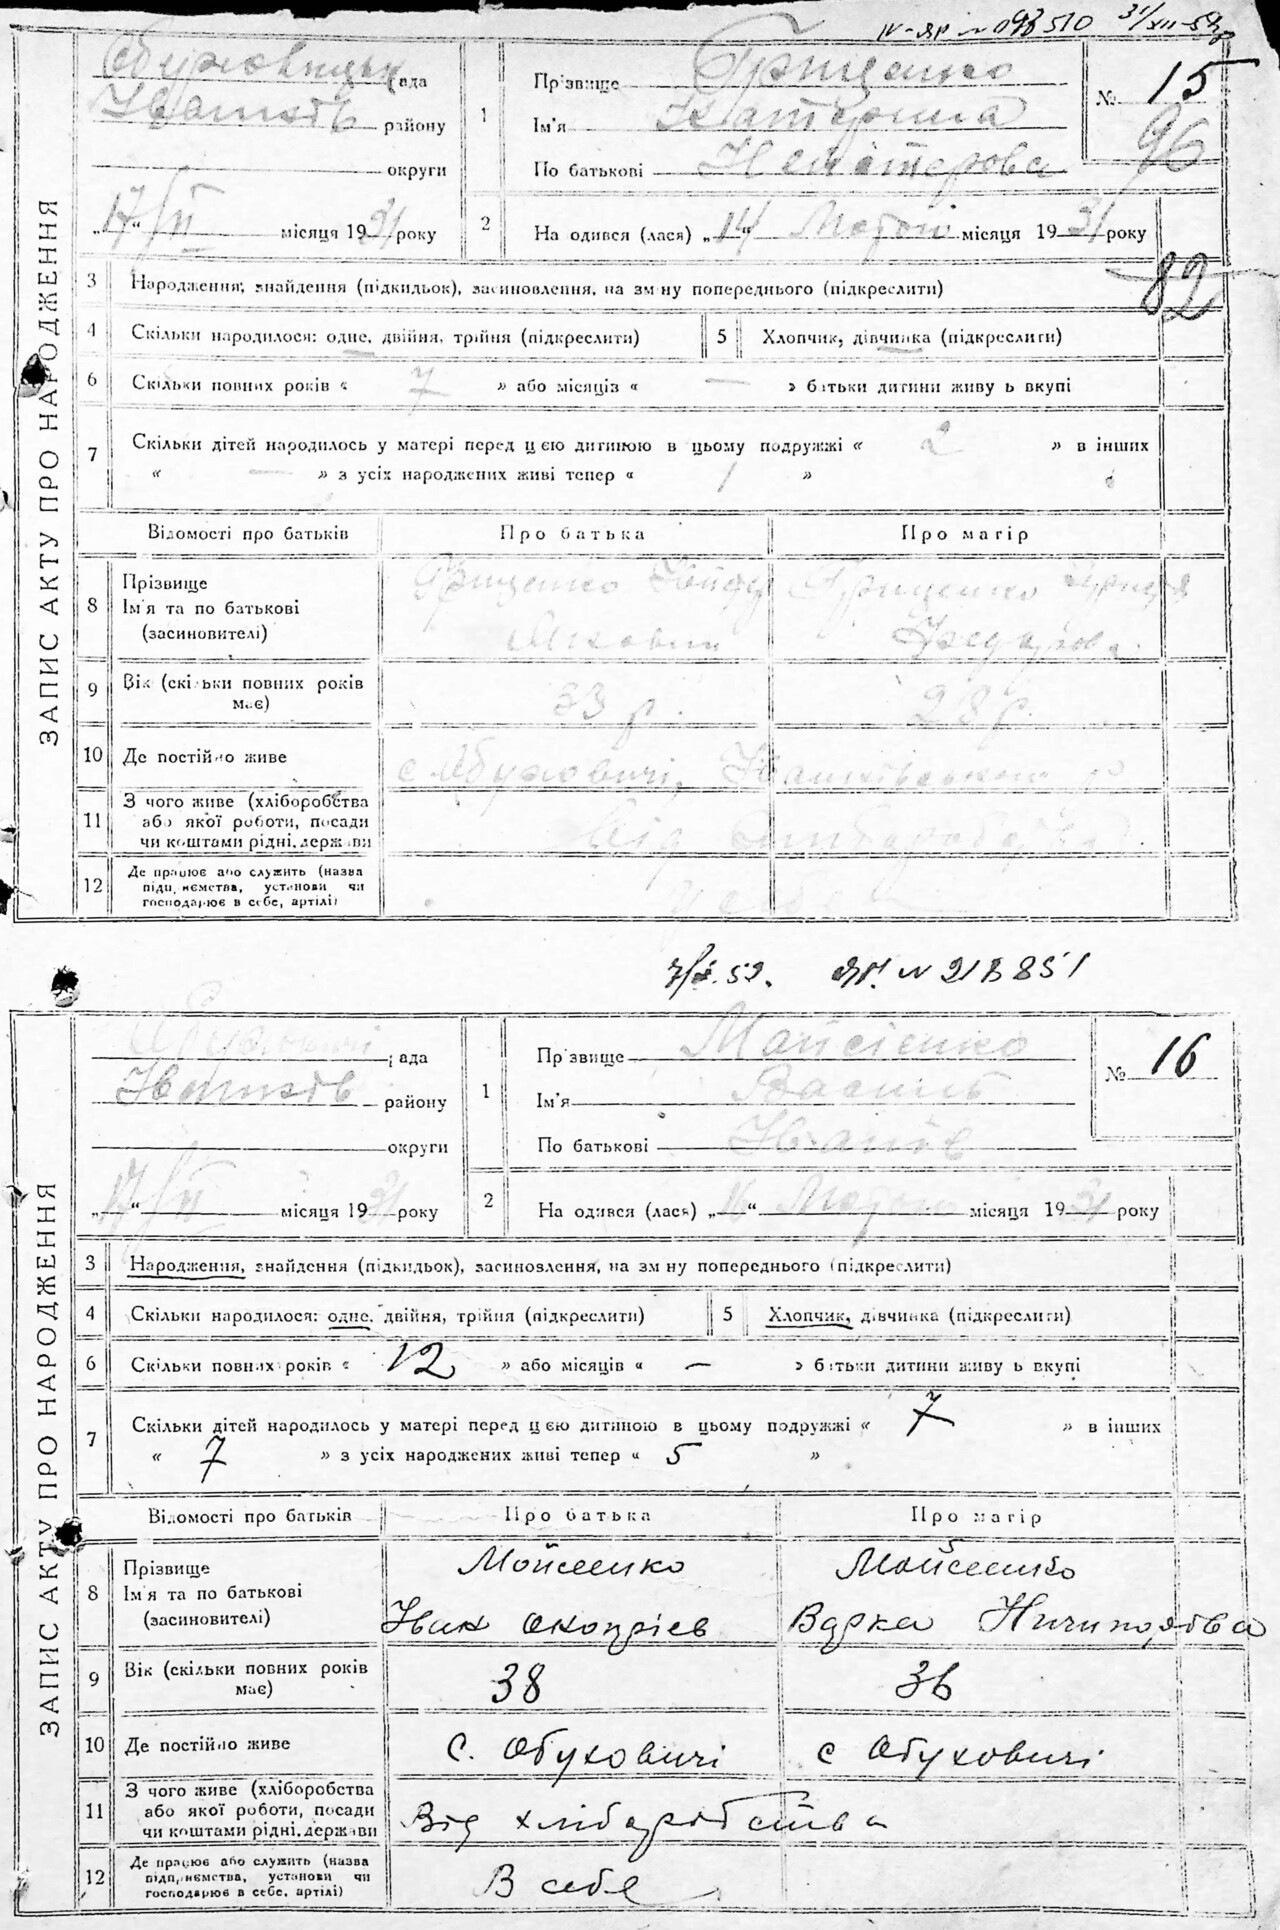 31/XII-52
ЗАПИС АКТУ ПРО НАРОДЖЕННЯ
ада
району
округи
„17“ II місяця 1931 року
1
Прізвище Грищенко
Ім'я Катерина
По батькові
№ 15
96
2
На одився (лася) „14“ Лютого місяця 1931 року
82
3 Народження, знайдення (підкидьок), засиновлення, на зм ну попереднього (підкреслити)
4 Скільки народилося: одне, двійня, трійня (підкреслити)
5 Хлопчик, дівчинка (підкреслити)
6 Скільки повних років « 7 » або місяців « — » батьки дитини живу ь вкупі
7 Скільки дітей народилось у матері перед цією дитиною в цьому подружжі « 2 » в інших
« — » з усіх народжених живі тепер « 1 »
Відомості про батьків Про батька Про матір
8 Прізвище
Ім'я та по батькові
(засиновителі)
Грищенко
Грищенко
9 Вік (скільки повних років
має)
33 р. 28 р.
10 Де постійно живе
с. Обуховичі,
11 З чого живе (хліборобства
або якої роботи, посади
чи коштами рідні, держави
Від
12 Де працює або служить (назва
підприємства, установи чи
господарює в себе, артілі)
52. № 218851
ЗАПИС АКТУ ПРО НАРОДЖЕННЯ
ада
району
округи
„17“ II місяця 1931 року
1
Прізвище Мойсієнко
Ім'я Василь
По батькові Іванів
№ 16
2
На одився (лася) „16“ Лютого місяця 1931 року
3 Народження, знайдення (підкидьок), засиновлення, на зм ну попереднього (підкреслити)
4 Скільки народилося: одне, двійня, трійня (підкреслити)
5 Хлопчик, дівчинка (підкреслити)
6 Скільки повних років « 12 » або місяців « — » батьки дитини живу ь вкупі
7 Скільки дітей народилось у матері перед цією дитиною в цьому подружжі « 7 » в інших
« 7 » з усіх народжених живі тепер « 5 »
Відомості про батьків Про батька Про матір
8 Прізвище
Ім'я та по батькові
(засиновителі)
Мойсеенко
Іван
Мойсеенко
Варка Ничипорівва
9 Вік (скільки повних років
має)
38 36
10 Де постійно живе
с. Обуховичі с Обуховичі
11 З чого живе (хліборобства
або якої роботи, посади
чи коштами рідні, держави
Від хліборобства
12 Де працює або служить (назва
підприємства, установи чи
господарює в себе, артілі)
В себе